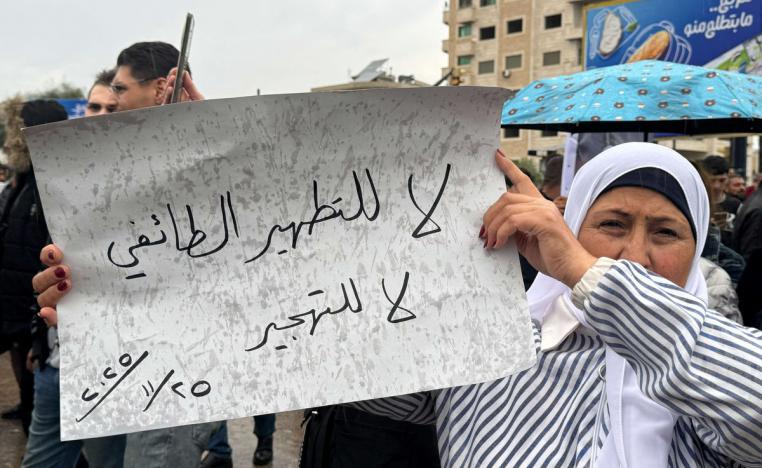 لا للتطهير الطائفي
لا للتهجير
٢٠٢٥/١١/٢٥
ما بتطلع منو